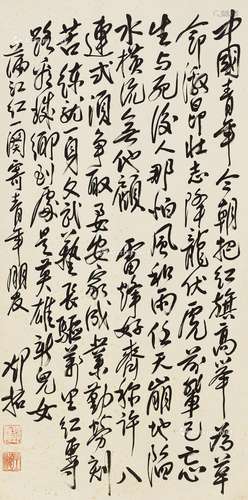 中国青年今朝把红旗高举为革
命激昂壮志降龙伏虎前辈已忘
生与死后人那怕风和雨任天崩地陷
水横流无他顾 雷锋好齐称许八
连式须争取要安家成业勤劳刻
苦练就一身文武艺长驱万里红专
路看城乡到处是英雄新儿女
满江红一阕寄青年朋友 邓拓